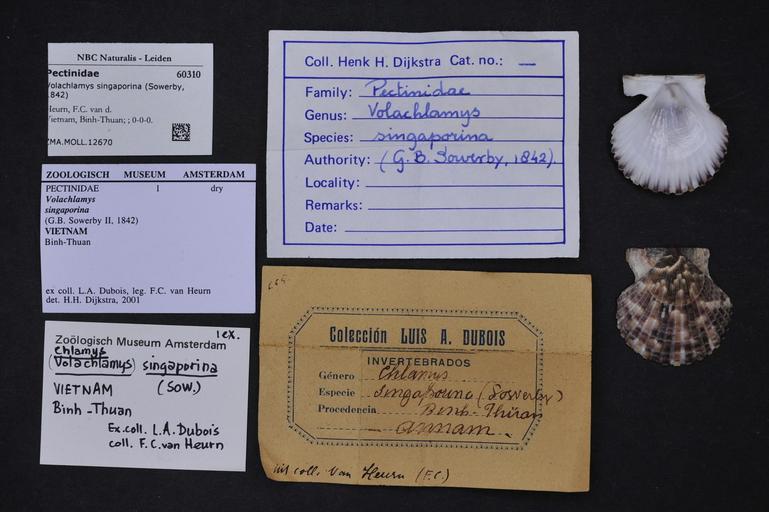 NBC Naturalis - Leiden
Pectinidae 60310
Volachlamys singaporina (Sowerby,
1842)
Heurn, F.C. van d.
Vietnam, Binh-Thuan; ; 0-0-0.
ZMA.MOLL.12670
ZOOLOGISCH MUSEUM AMSTERDAM
PECTINIDAE 1 dry
Volachlamys
singaporina
(G.B. Sowerby II, 1842)
VIETNAM
Binh-Thuan
ex coll. L.A. Dubois, leg. F.C. van Heurn
det. H.H. Dijkstra, 2001
1 ex.
Zoölogisch Museum Amsterdam
Chlamys
(Volachlamys) singaporina
VIETNAM (SOW.)
Binh-Thuan
Ex.coll. L.A. Dubois
coll. F.C. van Heurn
Coll. Henk H. Dijkstra Cat. no.: —
Family: Pectinidae
Genus: Volachlamys
Species: singaporina
Authority: (G.B. Sowerby, 1842)
Locality:
Remarks:
Date:
Colección LUIS A. DUBOIS
INVERTEBRADOS
Género Chlamys
Especie singaporina (Sowerby)
Procedencia Binh-Thuan
- Annam -
coll. Van Heurn (F.C.)